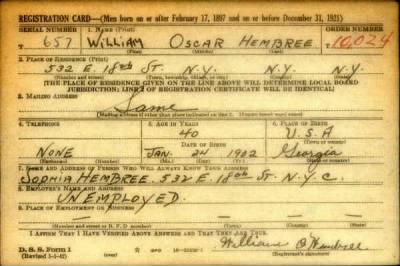 REGISTRATION CARD—(Men born on or after February 17, 1897 and on or before December 31, 1921)
SERIAL NUMBER 1. NAME (Print) ORDER NUMBER
657 William Oscar Hembree 10,024
(First) (Middle) (Last)
2. PLACE OF RESIDENCE (Print)
532 E. 18th St. N.Y. N.Y.
(Number and street) (Town, township, village, or city) (County) (State)
[THE PLACE OF RESIDENCE GIVEN ON THE LINE ABOVE WILL DETERMINE LOCAL BOARD
JURISDICTION; LINE 2 OF REGISTRATION CERTIFICATE WILL BE IDENTICAL]
3. MAILING ADDRESS
Same
(Mailing address if other than place indicated on line 2. If same insert word same)
4. TELEPHONE 5. AGE IN YEARS 6. PLACE OF BIRTH
40 U.S.A
DATE OF BIRTH (Town or county)
None Jan. 24 1902 Georgia
(Exchange) (Number) (Mo.) (Day) (Yr.) (State or country)
7. NAME AND ADDRESS OF PERSON WHO WILL ALWAYS KNOW YOUR ADDRESS
Sophia Hembree 532 E 18th St. N.Y.C.
8. EMPLOYER'S NAME AND ADDRESS
Unemployed.
9. PLACE OF EMPLOYMENT OR BUSINESS
(Number and street or R. F. D. number) (Town) (County) (State)
I AFFIRM THAT I HAVE VERIFIED ABOVE ANSWERS AND THAT THEY ARE TRUE.
D. S. S. Form 1 William O Hembree
(Revised 1-1-42) (over) (Registrant's signature)